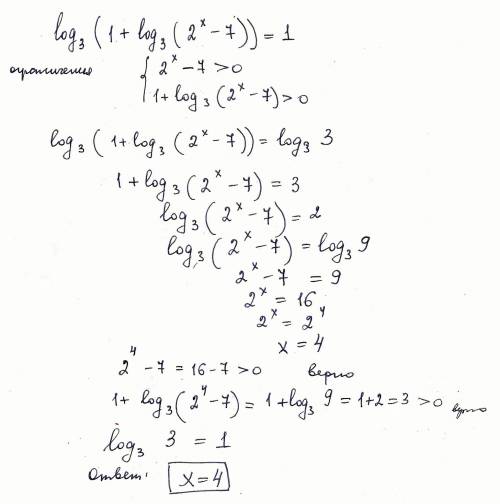 log₃(1+log₃(2ˣ-7))=1
ограничения { 2ˣ-7>0
1+log₃(2ˣ-7)>0
log₃(1+log₃(2ˣ-7))=log₃ 3
1+log₃(2ˣ-7)=3
log₃(2ˣ-7)=2
log₃(2ˣ-7)=log₃9
2ˣ-7 =9
2ˣ=16
2ˣ=2⁴
x=4
2⁴-7=16-7>0 верно
1+ log₃(2⁴-7)=1+log₃ 9=1+2=3>0 верно
log₃ 3 =1
Ответ: x=4